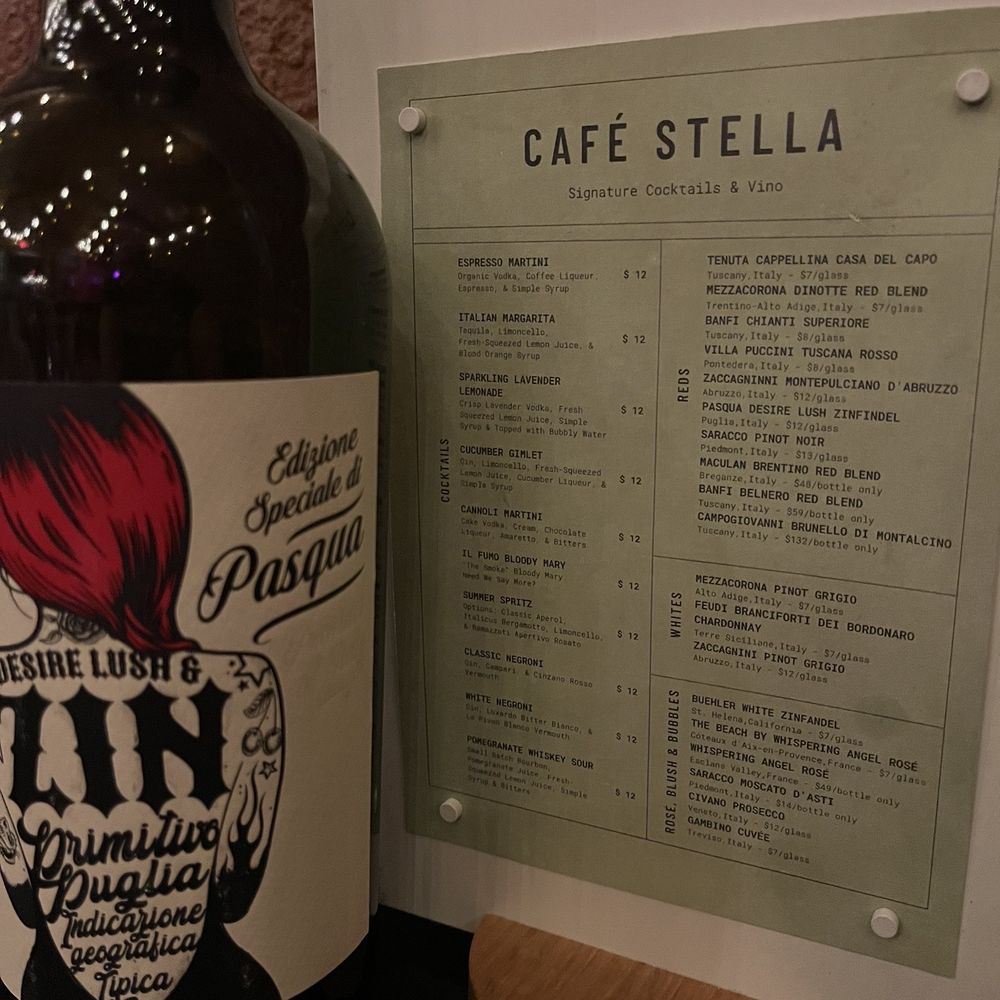 Edizione
Speciale di
Pasqua
DESIRE LUSH &
ZIN
Primitivo
Puglia
Indicazione
geografica
Tipica
CAFÉ STELLA
Signature Cocktails & Vino
COCKTAILS
ESPRESSO MARTINI
Organic Vodka, Coffee Liqueur, $ 12
Espresso, & Simple Syrup
ITALIAN MARGARITA
Tequila, Limoncello, $ 12
Fresh-Squeezed Lemon Juice, &
Blood Orange Syrup
SPARKLING LAVENDER
LEMONADE
Crisp Lavender Vodka, Fresh $ 12
Squeezed Lemon Juice, Simple
Syrup & Topped with Bubbly Water
CUCUMBER GIMLET
Gin, Limoncello, Fresh-Squeezed
Lemon Juice, Cucumber Liqueur, & $ 12
Simple Syrup
CANNOLI MARTINI
Cake Vodka, Cream, Chocolate
Liqueur, Amaretto, & Bitters $ 12
IL FUMO BLOODY MARY
"The Smoke" Bloody Mary
Need We Say More? $ 12
SUMMER SPRITZ
Options: Classic Aperol,
Italicus Bergamotto, Limoncello,
& Ramazzoti Apertivo Rosato $ 12
CLASSIC NEGRONI
Gin, Campari, & Cinzano Rosso
Vermouth $ 12
WHITE NEGRONI
Gin, Luxardo Bitter Bianco, &
Le Blanco Vermouth $ 12
POMEGRANATE WHISKEY SOUR
Small Batch Bourbon,
Pomegranate Juice, Fresh-
Squeezed Lemon Juice, Simple
Syrup & Bitters $ 12
REDS
TENUTA CAPPELLINA CASA DEL CAPO
Tuscany,Italy - $7/glass
MEZZACORONA DINOTTE RED BLEND
Trentino-Alto Adige,Italy - $7/glass
BANFI CHIANTI SUPERIORE
Tuscany,Italy - $8/glass
VILLA PUCCINI TUSCANA ROSSO
Pontedera,Italy - $8/glass
ZACCAGNINNI MONTEPULCIANO D'ABRUZZO
Abruzzo,Italy - $12/glass
PASQUA DESIRE LUSH ZINFINDEL
Puglia,Italy - $12/glass
SARACCO PINOT NOIR
Piedmont,Italy - $13/glass
MACULAN BRENTINO RED BLEND
Breganze,Italy - $48/bottle only
BANFI BELNERO RED BLEND
Tuscany,Italy - $59/bottle only
CAMPOGIOVANNI BRUNELLO DI MONTALCINO
Tuscany,Italy - $132/bottle only
WHITES
MEZZACORONA PINOT GRIGIO
Alto Adige,Italy - $7/glass
FEUDI BRANCIFORTI DEI BORDONARO
CHARDONNAY
Terre Siciliane,Italy - $7/glass
ZACCAGNINI PINOT GRIGIO
Abruzzo,Italy - $12/glass
ROSE, BLUSH & BUBBLES
BUEHLER WHITE ZINFANDEL
St. Helena,California - $7/glass
THE BEACH BY WHISPERING ANGEL ROSÉ
Coteaux d'Aix-en-Provence,France - $7/glass
WHISPERING ANGEL ROSÉ
Esclans Valley,France - $49/bottle only
SARACCO MOSCATO D'ASTI
Piedmont,Italy - $14/bottle only
CIVANO PROSECCO
Veneto,Italy - $12/glass
GAMBINO CUVÉE
Treviso,Italy - $7/glass